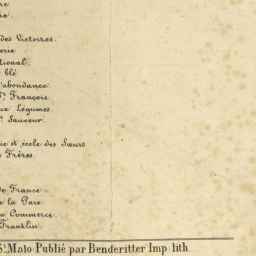 des Victoires.
erie
tional.
blé
'abondance.
St. François.
ux Légumes.
St. Sauveur.
ie et école des Sœurs
Frères.
de France
e la Gare
u Commerce.
Franklin
St. Malo Publié par Benderitter Imp. lith.